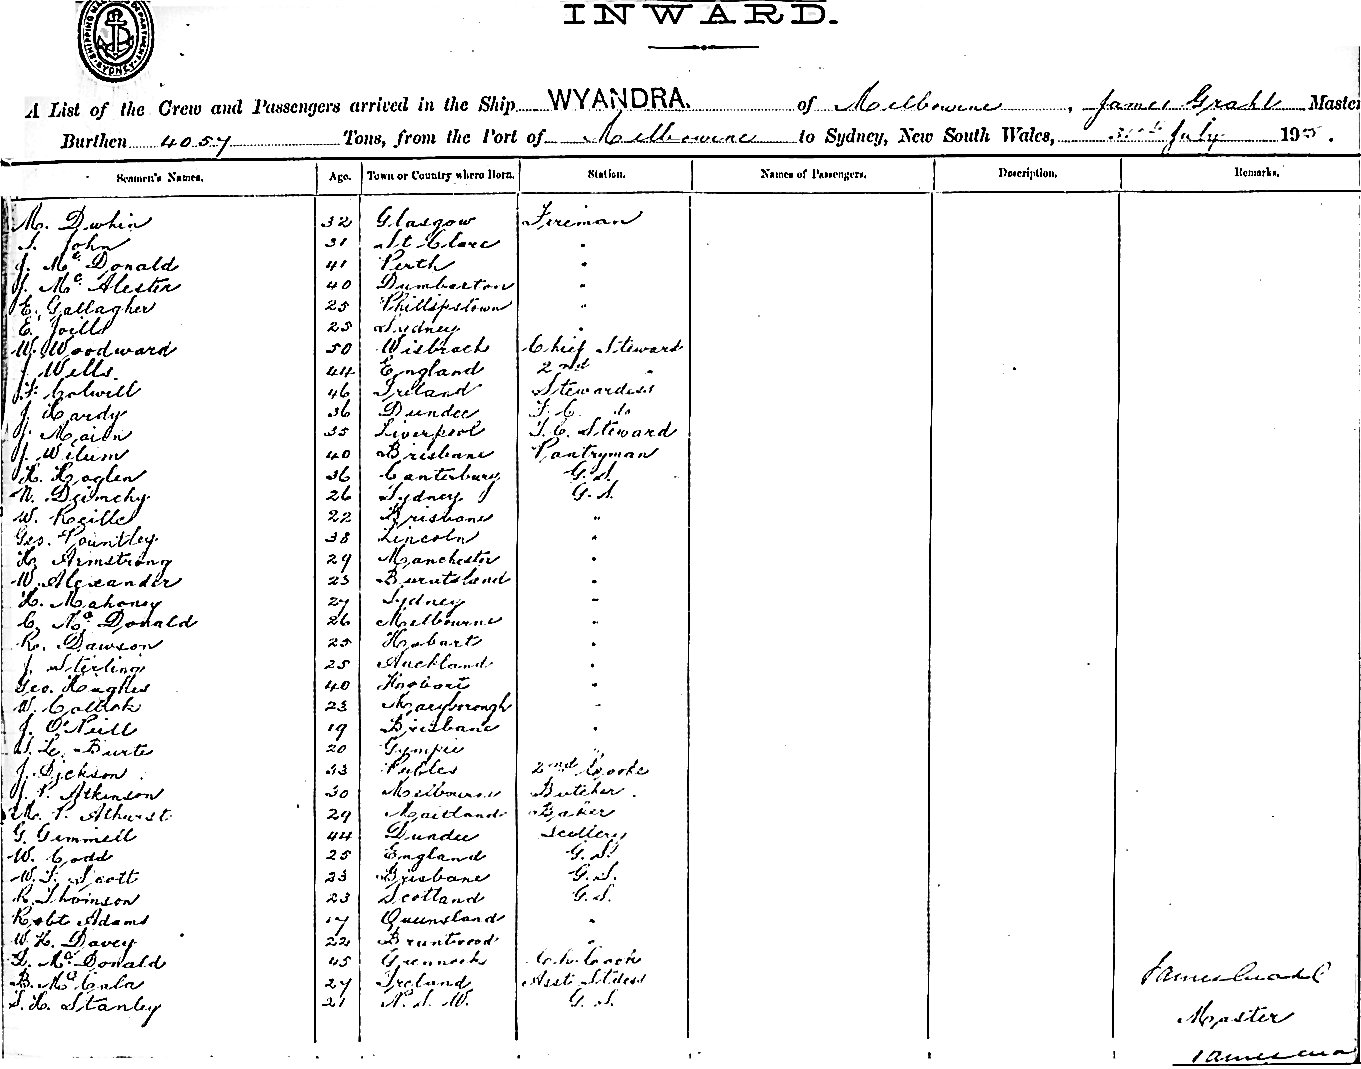 INWARD.
A List of the Crew and Passengers arrived in the Ship WYANDRA. of Melbourne, James Grahl Master
Burthen 4057 Tons, from the Port of Melbourne to Sydney, New South Wales, July 190
Seamen's Names. Age. Town or Country where Born. Station. Names of Passengers. Description. Remarks.
M. 32 Glasgow Fireman
S. John 31 St Clare "
J. Mc Donald 41 Perth "
J. Mc Alester 40 Dumbarton "
E. Gallagher 25 Phillipstown "
E. Joills 25 Sydney "
W. Woodward 50 Wisbeach Chief Steward
J. Wells 44 England 2nd "
F. Colwill 46 Ireland Stewardess
J. Hardy 36 Dundee F. C. do
J. Maion 35 Liverpool S. C. Steward
J. Wilum 40 Brisbane Pantryman
H. Hoglen 36 Canterbury G. S.
N. 26 Sydney G. S.
W. Reille 22 Brisbane "
Geo. Pountley 38 Lincoln "
H. Armstrong 29 Manchester "
W. Alexander 23 Burntsland "
H. Mahoney 27 Sydney "
C. Mc Donald 26 Melbourne "
R. Dawson 25 Hobart "
J. Sterling 25 Auckland "
Geo. Hughes 40 Hobart "
W. 23 Maryborough "
J. O'Neill 19 Brisbane "
Le. Burte 20 Gympie "
J. Dickson 33 Peebles 2nd Cooke
J. P. Atkinson 30 Melbourne Butcher.
M. P. Athurst 29 Maitland Baker
G. Gemmell 44 Dundee Scullery
W. Codd 25 England G. S.
W. F. Scott 23 Brisbane G. S.
R. Thomson 23 Scotland G. S.
Robt Adams 17 Queensland "
W. H. Davey 22 Bruntwood "
D. Mc Donald 45 Greenock Ch. Cook
B. Mc Cala 27 Ireland Asst Stdess
S. H. Stanley 21 N. S. W. G. S.
James Grahl
Master